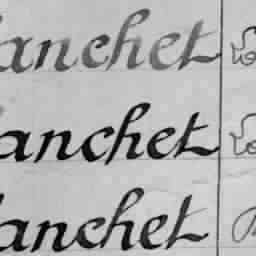 anchet
anchet
anchet